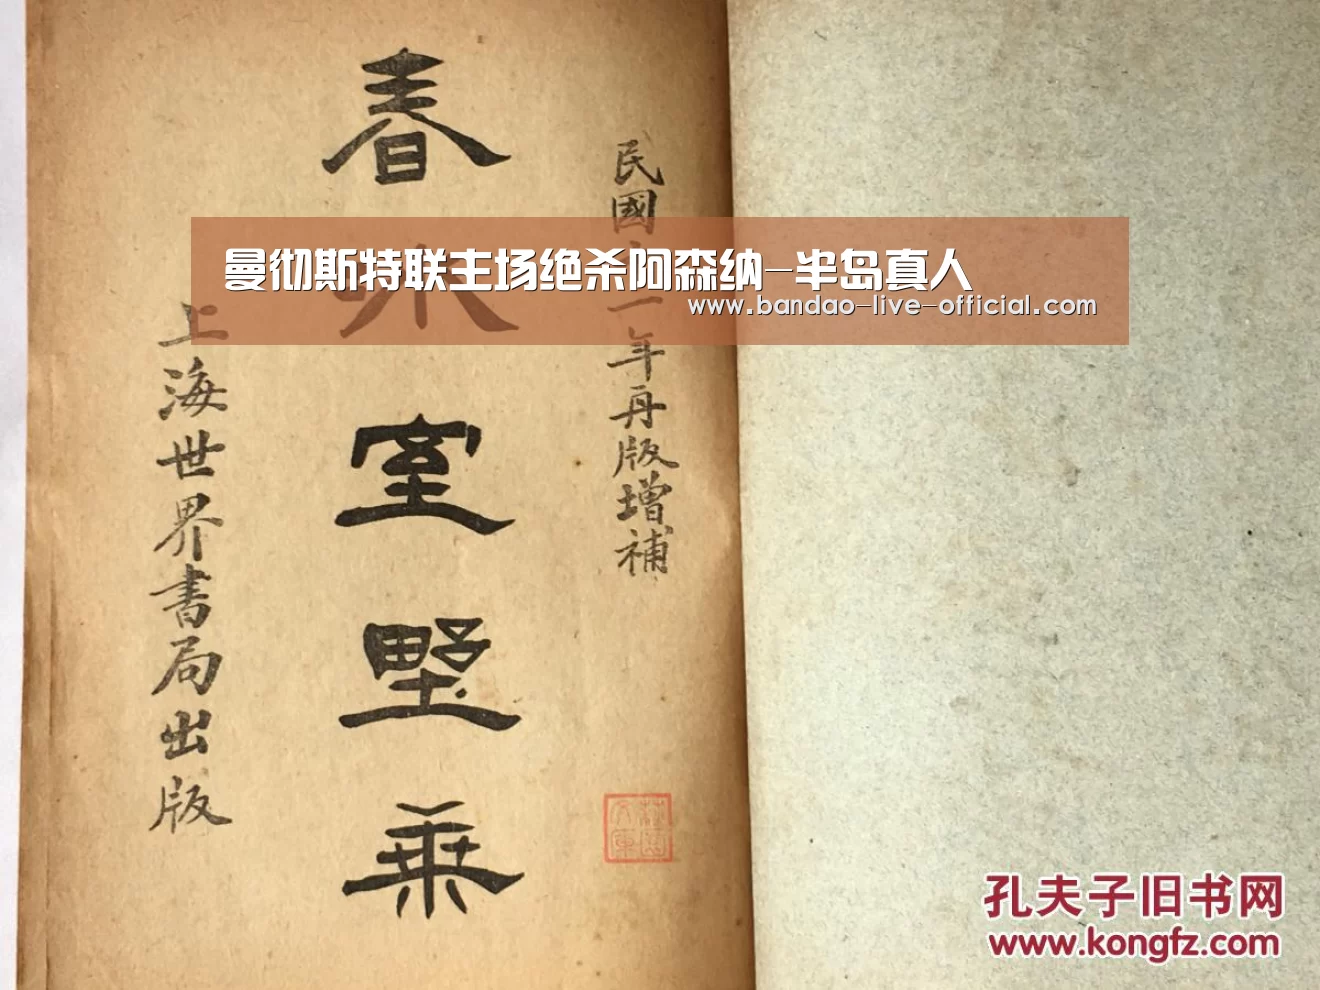 民國
一年再版增補
春
室野乘
上海世界書局出版
曼彻斯特联主场绝杀阿森纳-半岛真人
www.bandao-live-official.com
孔夫子旧书网
www.kongfz.com